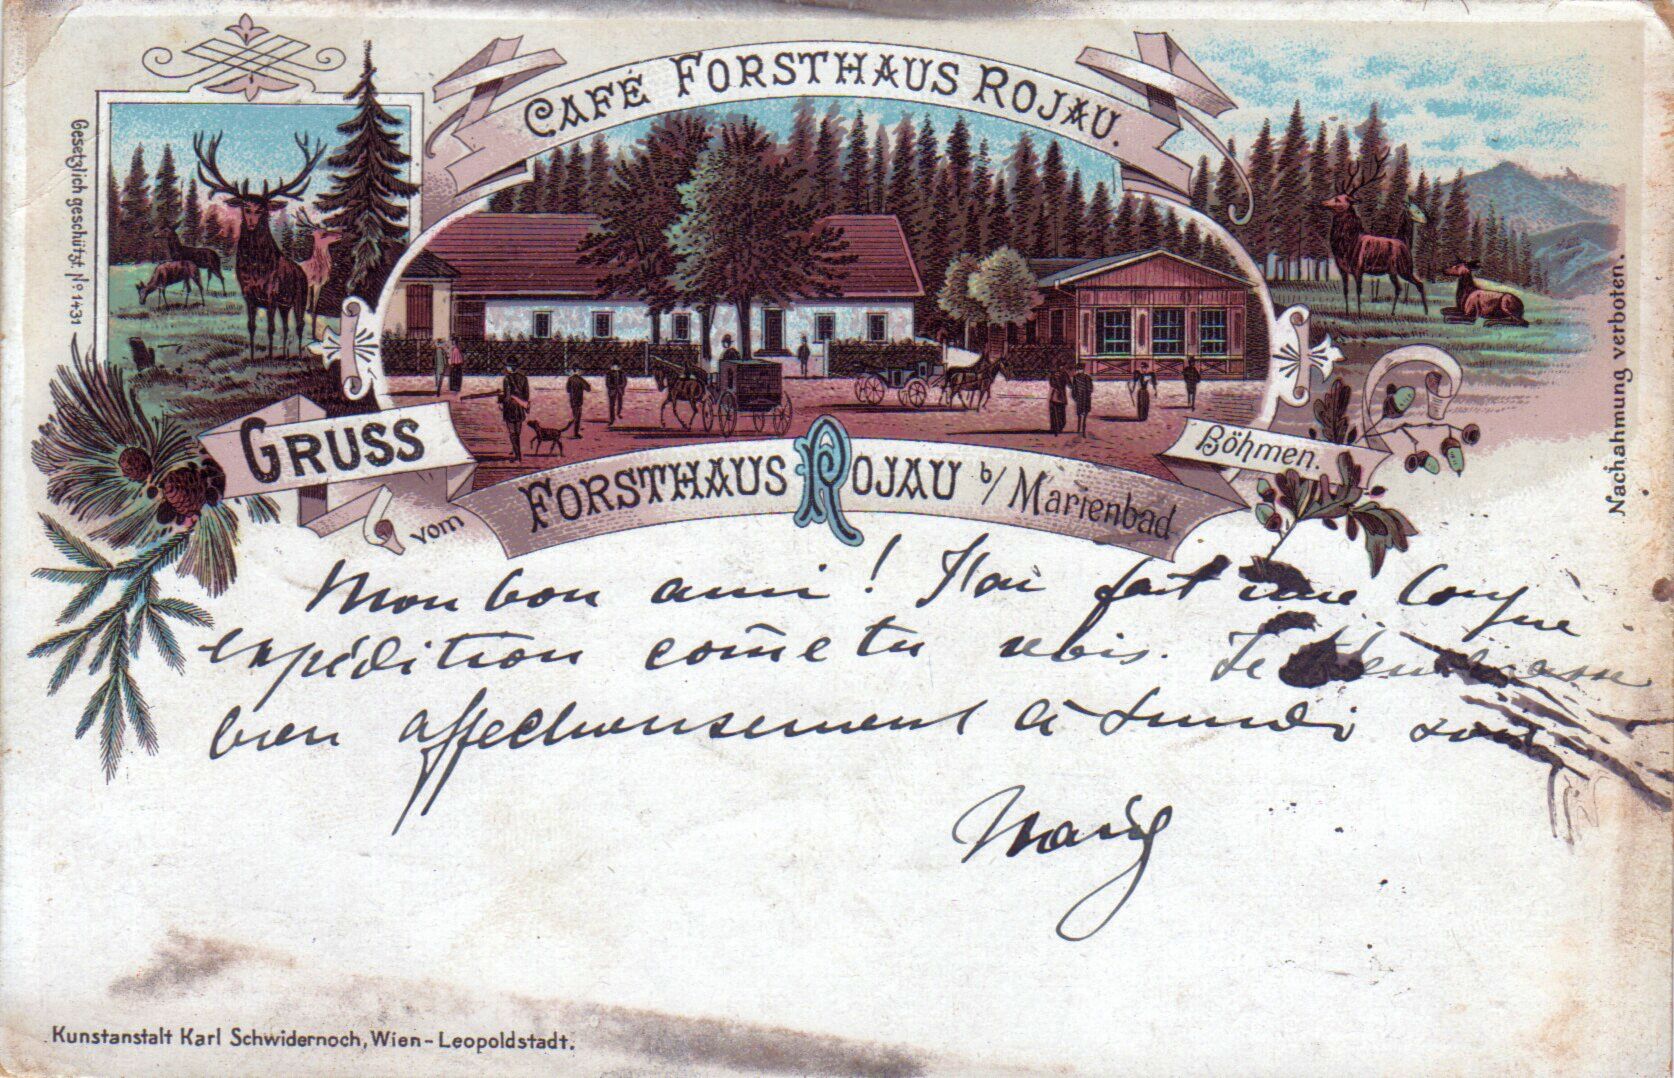 CAFÉ FORSTHAUS ROJAU.
Gesetzlich geschützt. No 1431
Nachahmung verboten.
GRUSS
vom
FORSTHAUS ROJAU b/ Marienbad
Böhmen.
Mon bon ami! J'ai fait une longue
expédition com̄e tu vois. Je t'embrasse
bien affectueusement à Lundi
Kunstanstalt Karl Schwidernoch, Wien-Leopoldstadt.